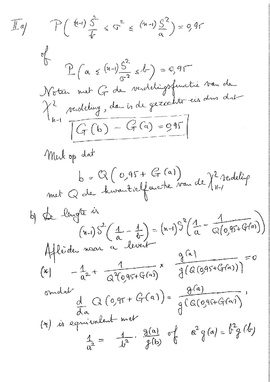 II a) P( (n-1)S²/b ≤ σ² ≤ (n-1)S²/a ) = 0,95
of
P( a ≤ (n-1)S²/σ² ≤ b ) = 0,95
Noteren met G de verdelingsfunctie van de
χ²ₙ₋₁ verdeling, dan is de gezochte eis dus dat
G(b) – G(a) = 0,95
Merk op dat
b = Q( 0,95 + G(a) )
met Q de kwantielfunctie van de χ²ₙ₋₁ verdeling
b) De lengte is
(n-1)S² ( 1/a – 1/b ) = (n-1)S² ( 1/a – 1/Q(0,95+G(a)) )
Afleiden naar a levert
(*) – 1/a² + 1/Q²(0,95+G(a)) × g(a)/g(Q(0,95+G(a))) = 0
omdat
d/da Q(0,95+G(a)) = g(a)/g(Q(0,95+G(a))),
(*) is equivalent met
1/a² = 1/b² · g(a)/g(b) of a²g(a) = b²g(b)